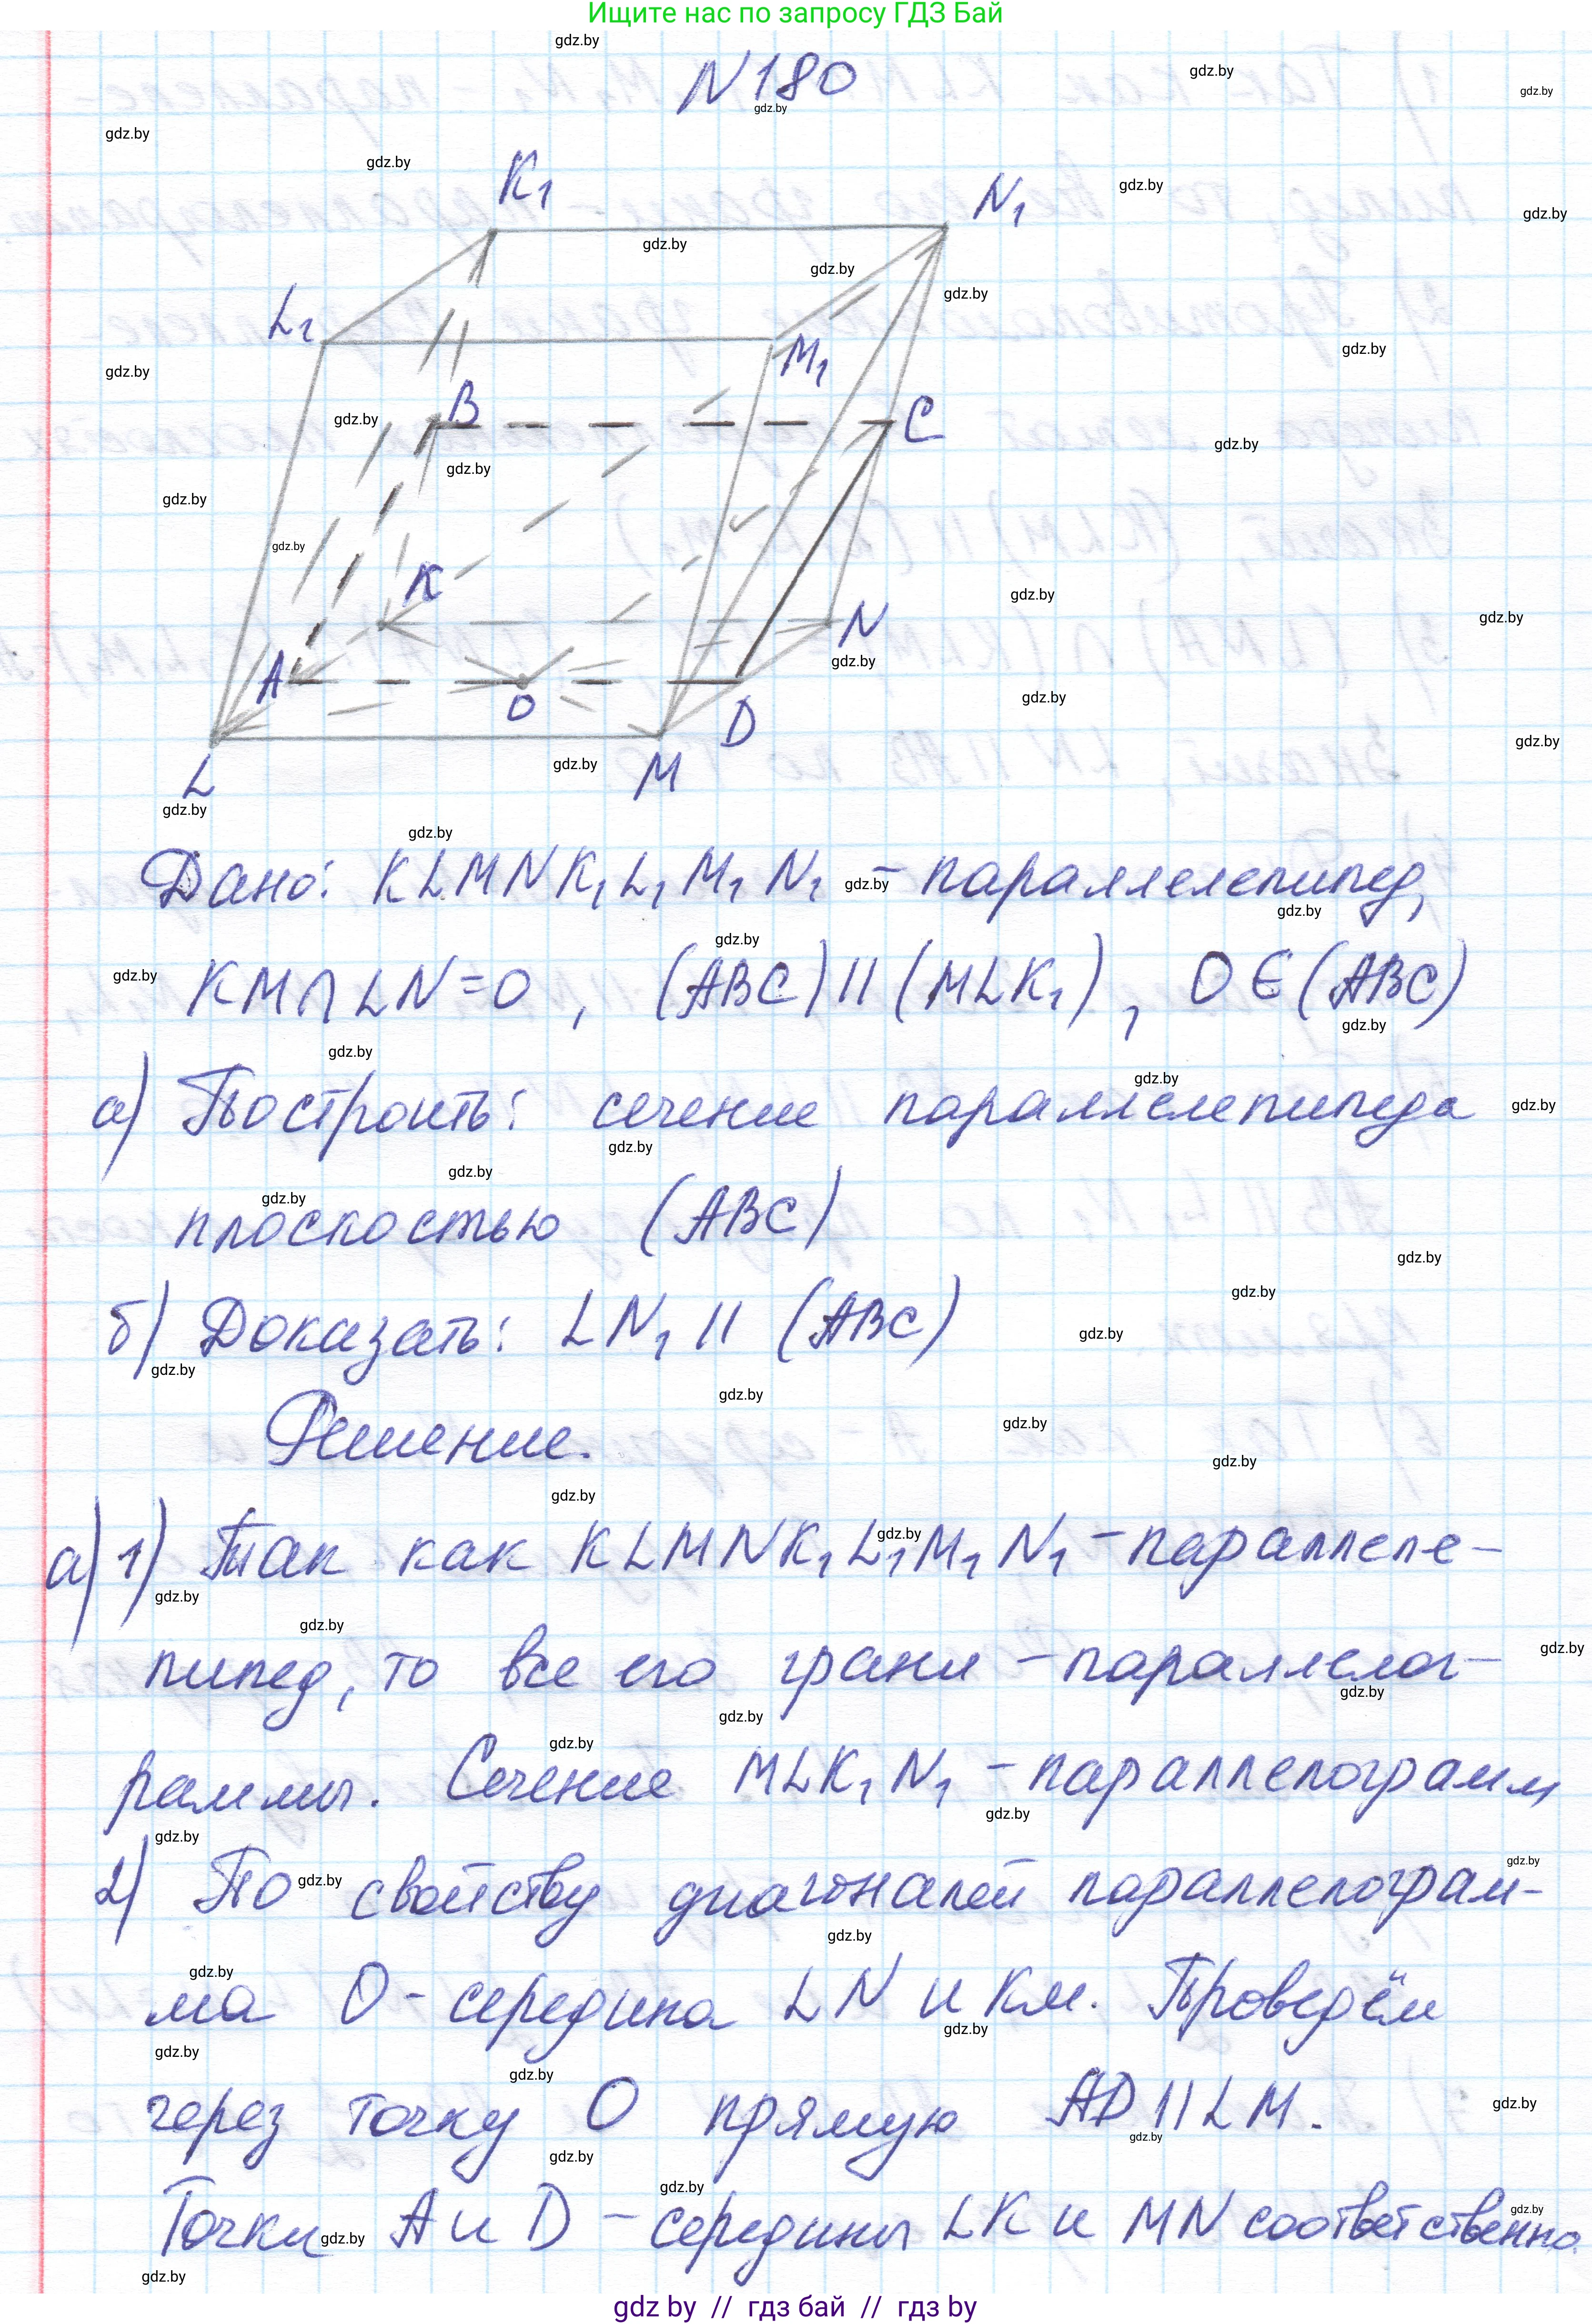 Ищите нас по запросу ГДЗ Бай
N180
K₁
N₁
L₁
M₁
B
C
K
N
A
O
D
L
M
Дано: KLMNK₁L₁M₁N₁ – параллелепипед,
KM∩LN=O, (ABC)||(MLK₁), O∈(ABC)
а) Построить: сечение параллелепипеда
плоскостью (ABC)
б) Доказать: LN₁ || (ABC)
Решение.
а) 1) Так как KLMNK₁L₁M₁N₁ – параллеле-
пипед, то все его грани – параллелог-
раммы. Сечение MLK₁N₁ – параллелограмм
2) По свойству диагоналей параллелограм-
ма O – середина LN и KM. Проведём
через точку O прямую AD||LM.
Точки A и D – середины LK и MN соответственно.
gdz by // гдз бай // гдз by